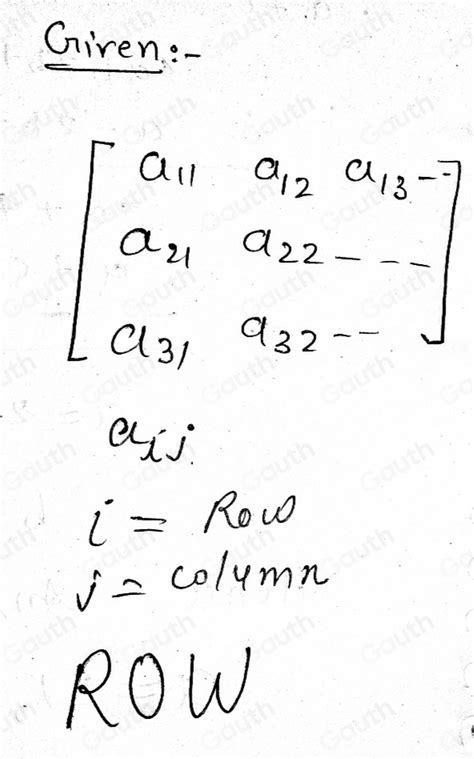 Given:-
a11 a12 a13--
a21 a22---
a31 a32--
aij
i = Row
j = column
ROW